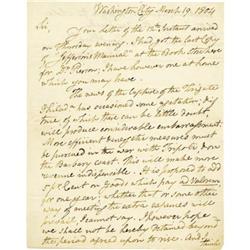 Washington City March 19. 1804
Sir,
Your letter of the 12th Instant arrived
on Thursday evening. I had got the last Copy of
Jefferson's Manual at the Book Store here
for Dr. Pierson. I have however one at home
which you may have.
The news of the capture of the Frigate
Philad. has occasioned some agitation; of
the truth of which there can be little doubt,
will produce considerable embarrassment.
More efficient & energetic measures must
be pursued in the war with Tripoli & on
the Barbary coast. This will make more
revenue indispensible. It is proposed to add
2 p Cent on Goods which pay ad Valorem
for one year; whether that or some other
way of meeting the extra expenses will
prevail I cannot say. I however hope
we shall not be hereby detained beyond
the period agreed upon to rise. And